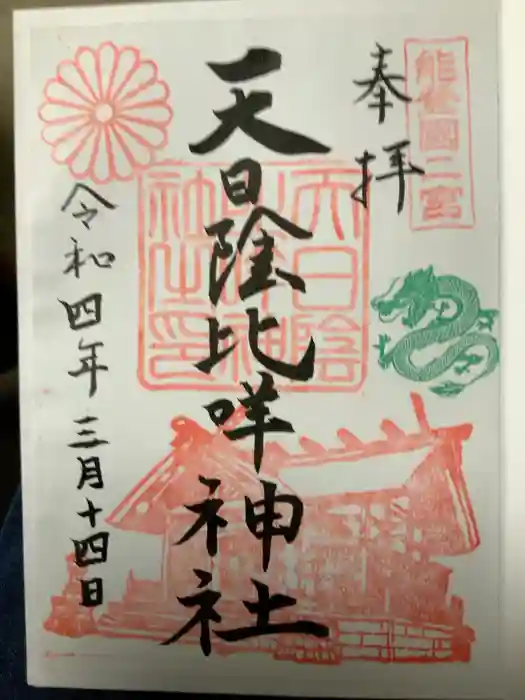 能登國二宮
奉拝
天日陰比咩神社
天日陰比咩神社之印
令和四年三月十四日